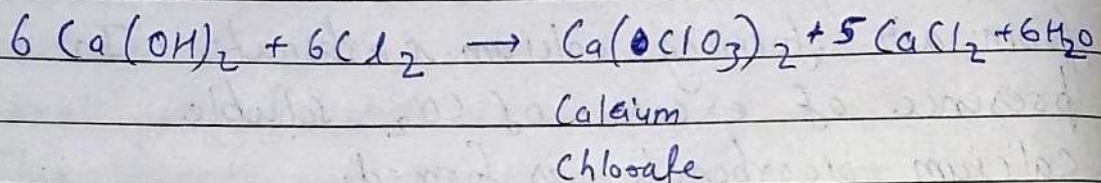 6 Ca(OH)₂ + 6Cl₂ → Ca(ClO₃)₂ + 5 CaCl₂ + 6H₂O
Calcium
Chlorate